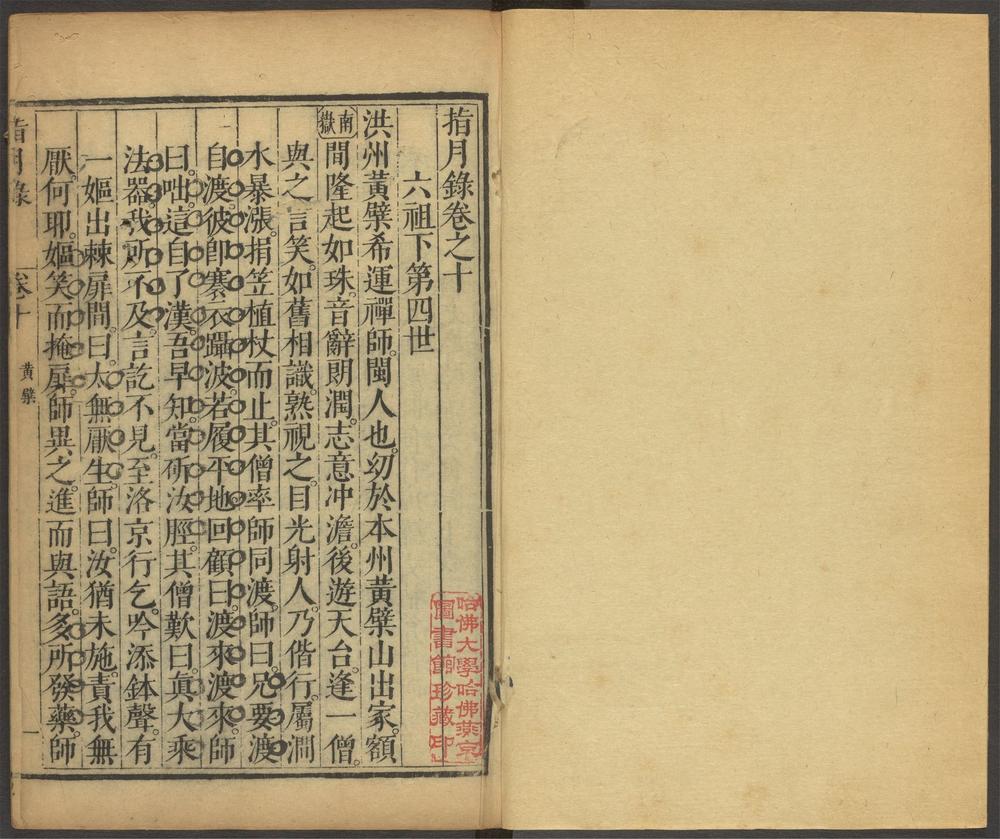 指月錄卷之十
六祖下第四世
南嶽
洪州黃檗希運禪師。閩人也。幼於本州黃檗山出家。額
間隆起如珠。音辭朗潤。志意冲澹。後遊天台。逢一僧。
與之言笑。如舊相識。熟視之。目光射人。乃偕行。屬澗
水暴漲。捐笠植杖而止。其僧率師同渡。師曰。兄要渡
自渡。彼卽褰衣躡波。若履平地。回顧曰。渡來渡來。師
曰。咄。這自了漢。吾早知。當斫汝脛。其僧歎曰。眞大乘
法器。我所不及。言訖不見。至洛京行乞。吟添鉢聲。有
一嫗出棘扉間。曰。太無厭生。師曰。汝猶未施。責我無
厭。何耶。嫗笑而掩扉。師異之。進而與語。多所發藥。師
指月錄 卷十 黃檗 一
哈佛大學哈佛燕京
圖書館珍藏印